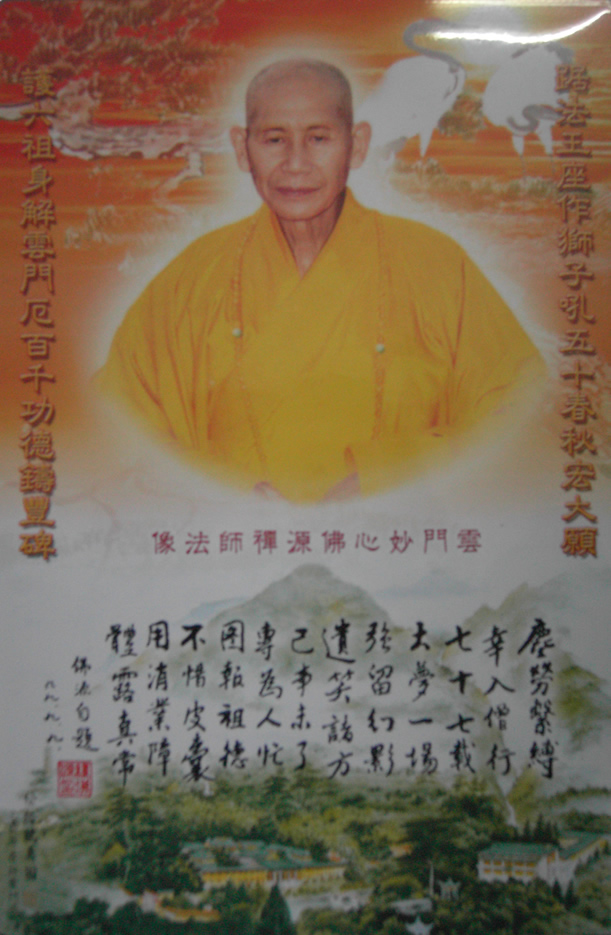 踞法王座作獅子吼五十春秋宏大願
護六祖身解雲門厄百千功德鑄豐碑
雲門妙心佛源禪師法像
塵勞繫縛
幸入僧行
七十七載
大夢一場
強留幻影
遺笑諸方
己事未了
專為人忙
图報祖德
不惜皮囊
用消業障
體露真常
佛源自題
八九.九.九.